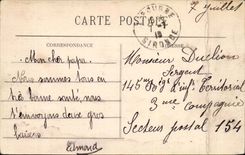 7 Juillet
CARTE POSTALE
GIRONDE
CORRESPONDANCE
Mon cher papa.
Nous sommes tous en
très bonne santé, nous
t'envoyons deux gros
baisers
Edmond
Monsieur Duclion
Sergent
145me Rgt d'Inf. Territorial
3me Compagnie
Secteur postal 154